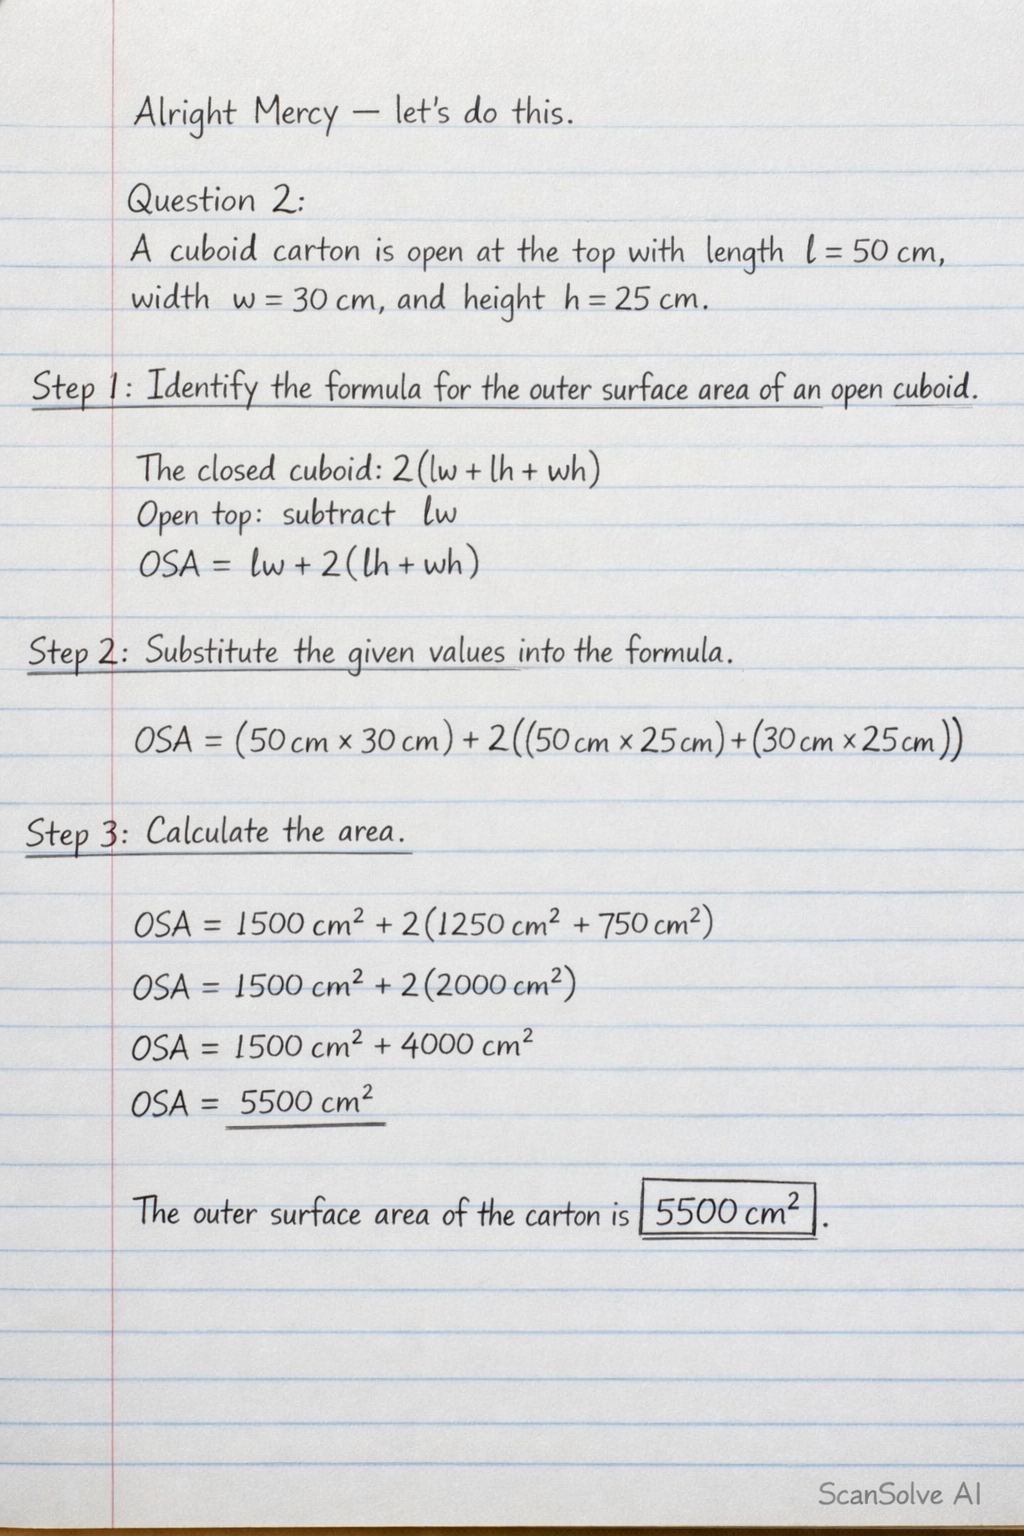 Alright Mercy — let's do this.
Question 2:
A cuboid carton is open at the top with length l = 50 cm,
width w = 30 cm, and height h = 25 cm.
Step 1: Identify the formula for the outer surface area of an open cuboid.
The closed cuboid: 2(lw + lh + wh)
Open top: subtract lw
OSA = lw + 2(lh + wh)
Step 2: Substitute the given values into the formula.
OSA = (50 cm × 30 cm) + 2((50 cm × 25 cm) + (30 cm × 25 cm))
Step 3: Calculate the area.
OSA = 1500 cm² + 2(1250 cm² + 750 cm²)
OSA = 1500 cm² + 2(2000 cm²)
OSA = 1500 cm² + 4000 cm²
OSA = 5500 cm²
The outer surface area of the carton is 5500 cm².
ScanSolve AI